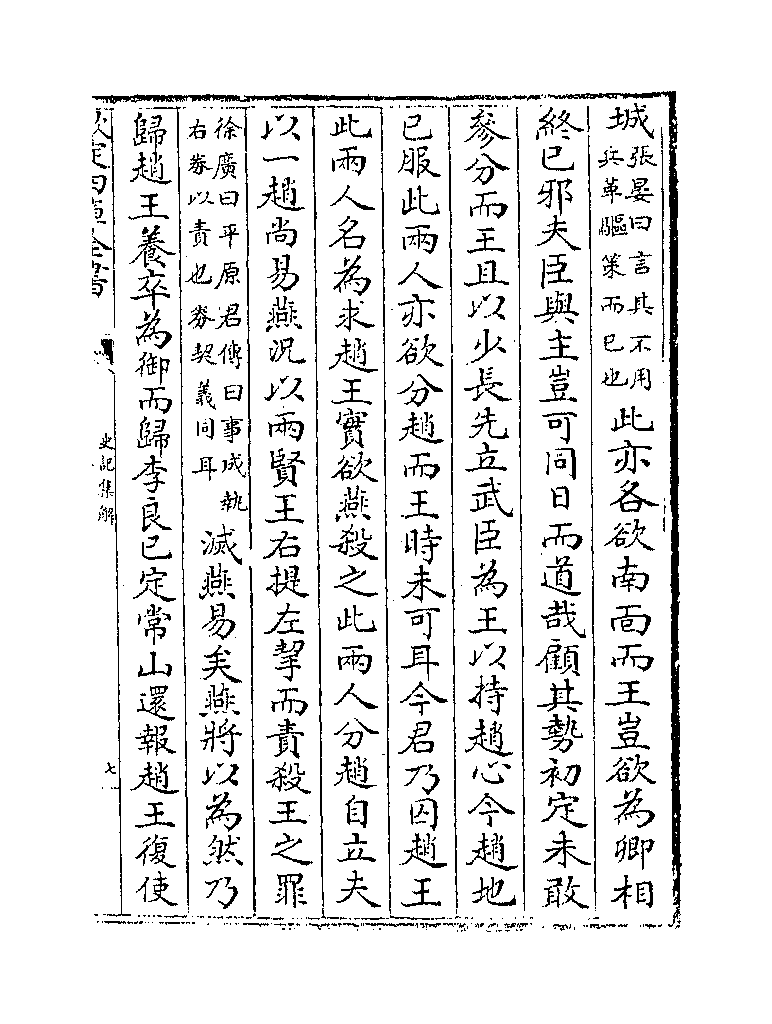 城張晏曰言其不用兵革驅策而已也此亦各欲南面而王豈欲為卿相
終已邪夫臣與主豈可同日而道哉顧其勢初定未敢
參分而王且以少長先立武臣為王以持趙心今趙地
已服此兩人亦欲分趙而王時未可耳今君乃囚趙王
此兩人名為求趙王實欲燕殺之此兩人分趙自立夫
以一趙尚易燕況以兩賢王右提左挈而責殺王之罪
徐廣曰平原君傳曰事成執右券以責也券契義同耳滅燕易矣燕將以為然乃
歸趙王養卒為御而歸李良已定常山還報趙王復使
欽定四庫全書
史記集解
七